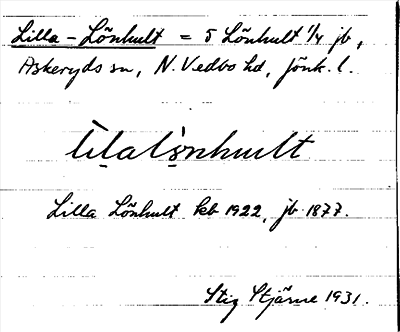 Lilla-Lönhult = 5 Lönhult 1/4 jb,
Askeryds sn, N. Vedbo hd, Jönk. l.
Lilla Lönhult kb 1922, jb 1877.
Stig Stjärne 1931.